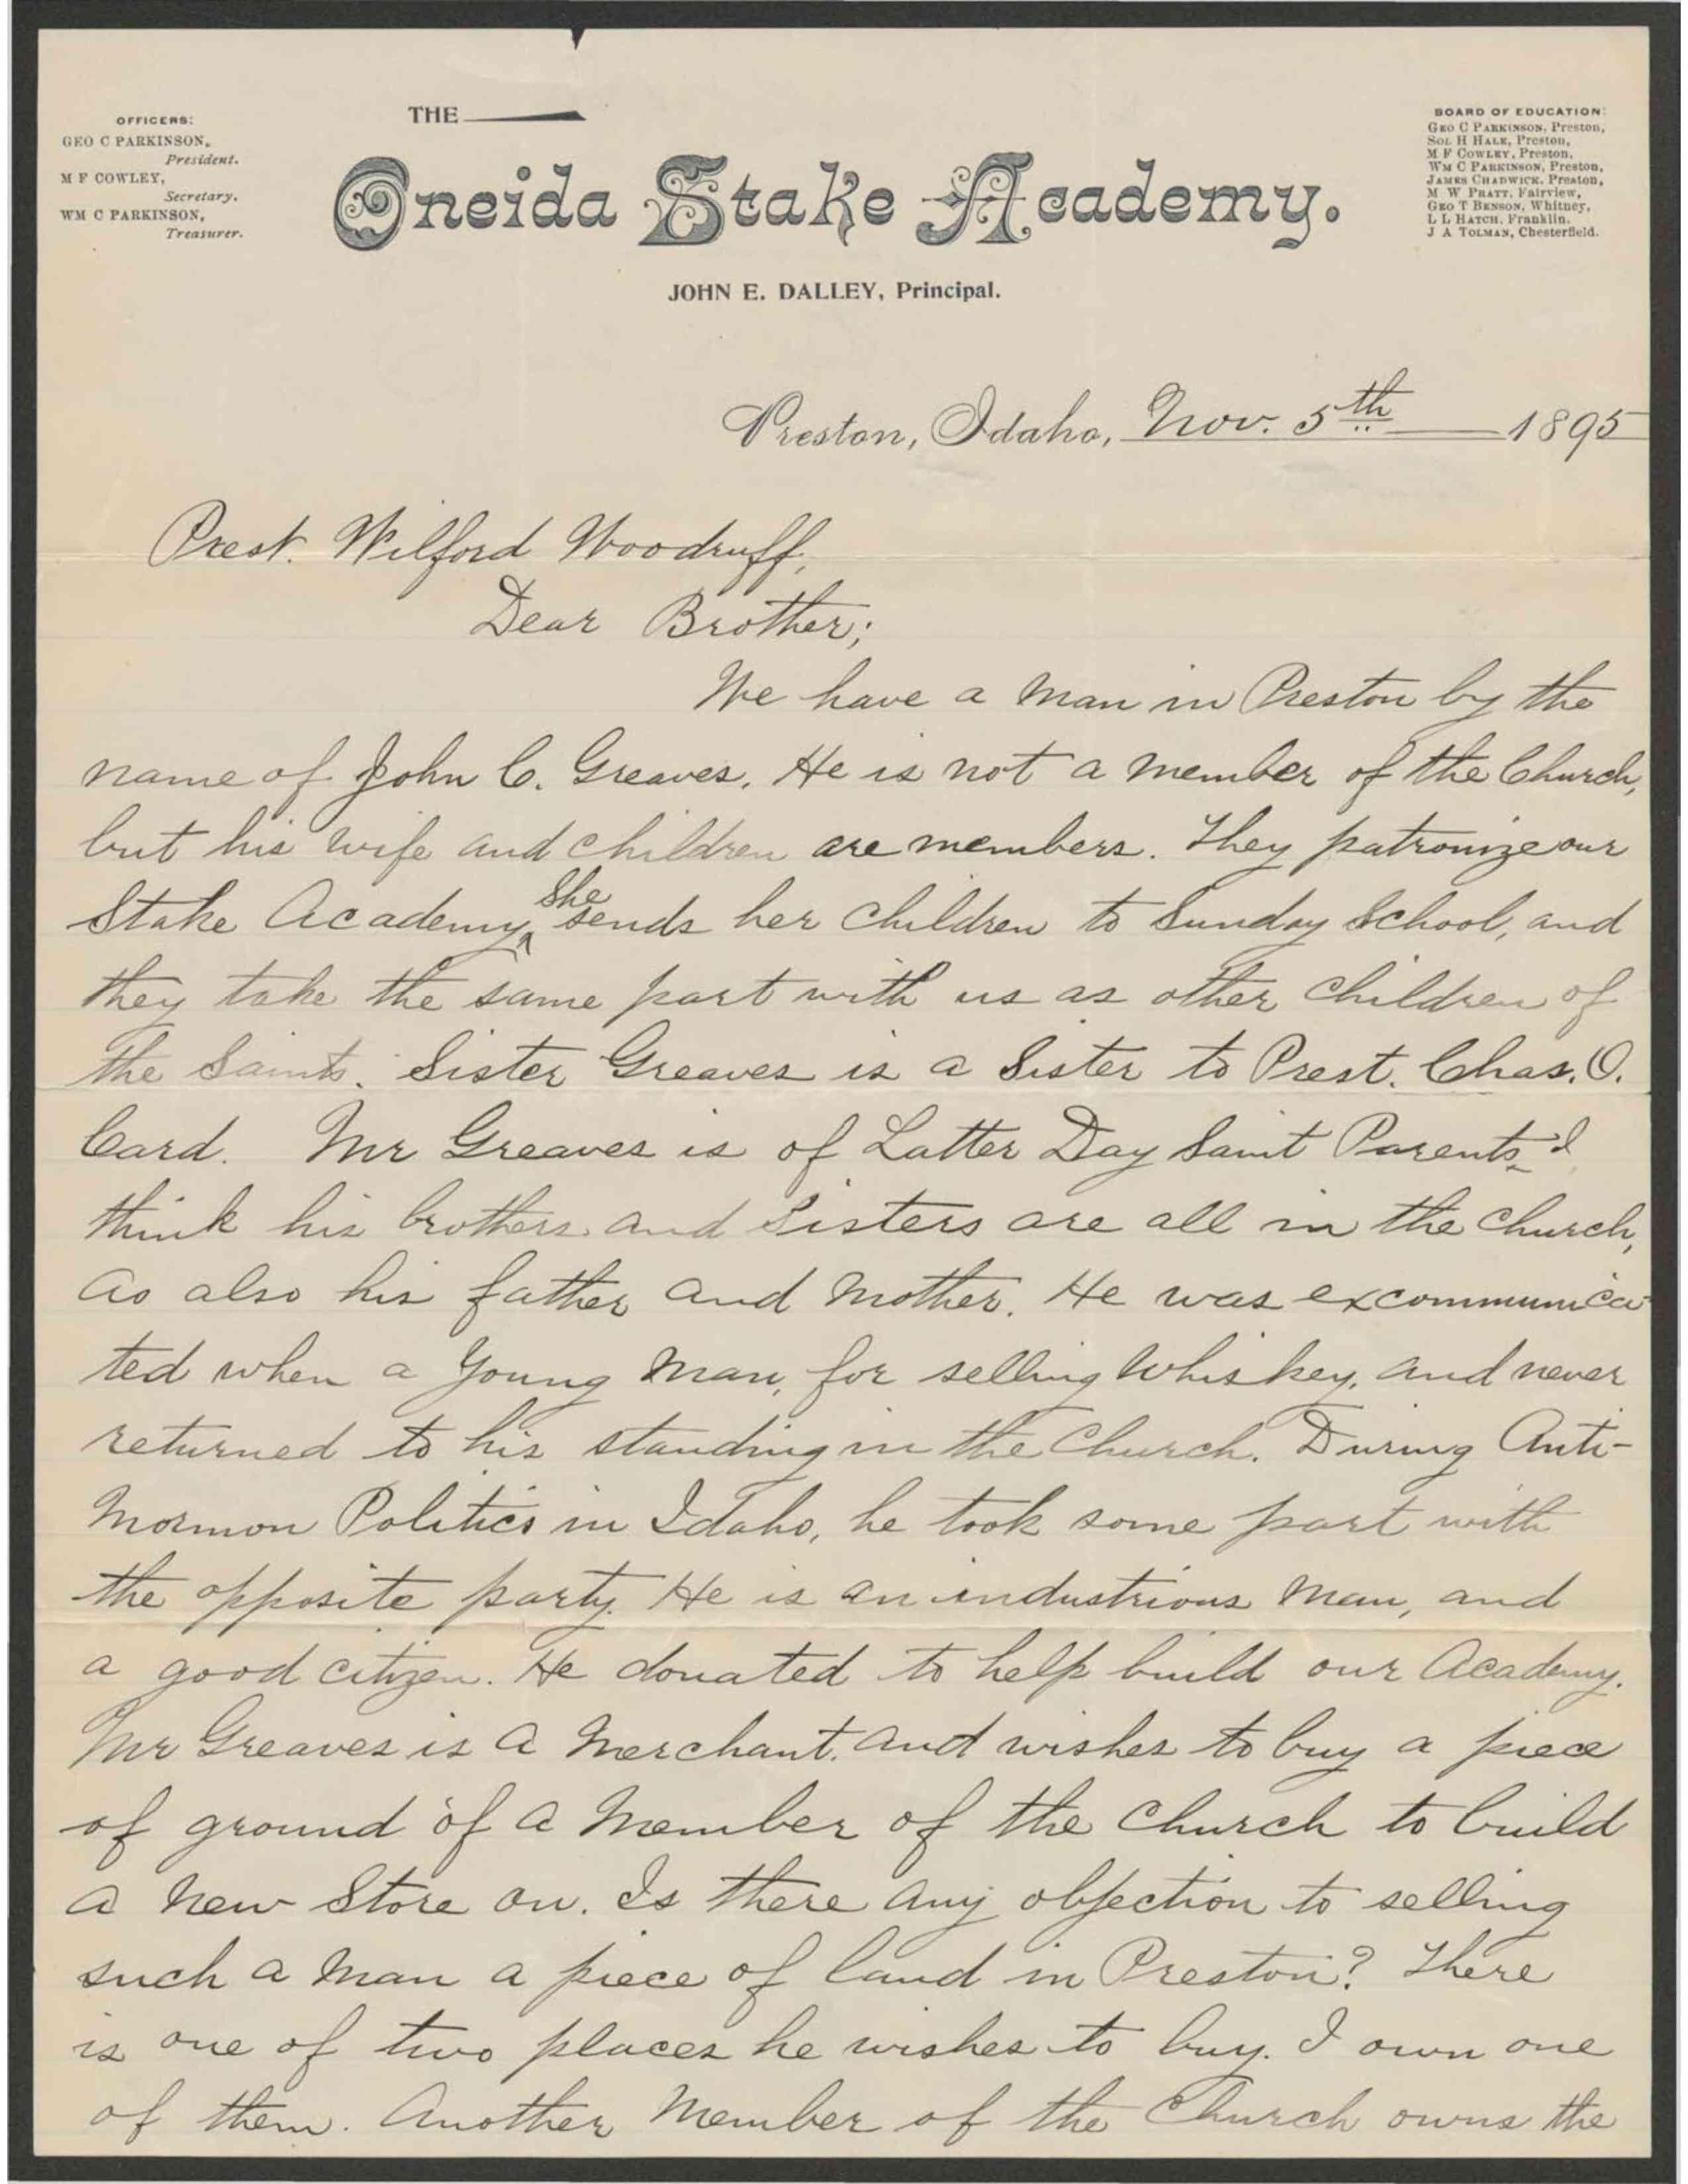 OFFICERS:
GEO C PARKINSON,
President.
M F COWLEY,
Secretary.
WM C PARKINSON,
Treasurer.
THE
Oneida Stake Academy.
JOHN E. DALLEY, Principal.
BOARD OF EDUCATION:
GEO C PARKINSON, Preston,
SOL H HALE, Preston,
M F COWLEY, Preston,
WM C PARKINSON, Preston,
JAMES CHADWICK, Preston,
M W PRATT, Fairview,
GEO T BENSON, Whitney,
L L HATCH, Franklin.
J A TOLMAN, Chesterfield.
Preston, Idaho, Nov. 5th 1895
Prest. Wilford Woodruff,
Dear Brother;
We have a man in Preston by the
name of John C. Greaves. He is not a member of the Church,
but his wife and children are members. They patronize our
Stake Academy, She sends her children to Sunday School, and
they take the same part with us as other children of
the Saints. Sister Greaves is a Sister to Prest. Chas. O.
Card. Mr Greaves is of Latter Day Saint Parents I
think his brothers and Sisters are all in the church,
as also his father and mother. He was excommunica-
ted when a young man, for selling whiskey, and never
returned to his standing in the Church. During Anti-
Mormon Politics in Idaho, he took some part with
the opposite party. He is an industrious man, and
a good citizen. He donated to help build our Academy.
Mr Greaves is a merchant. and wishes to buy a piece
of ground of a member of the church to build
a new store on. Is there any objection to selling
such a man a piece of land in Preston? There
is one of two places he wishes to buy. I own one
of them. Another member of the Church owns the